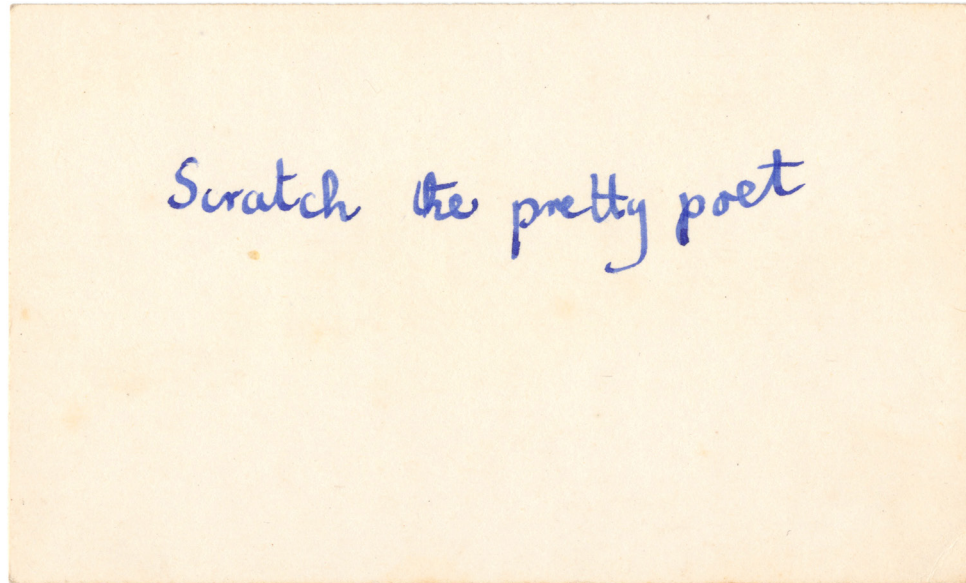 Scratch the pretty poet